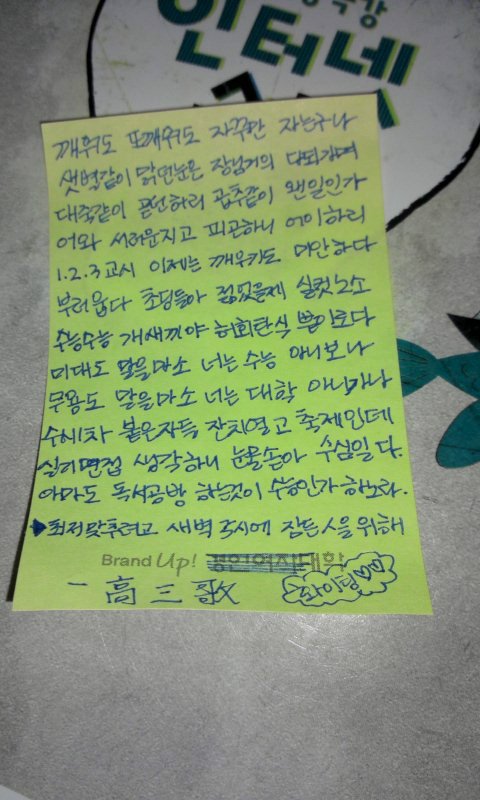 인터넷
깨워도 또깨워도 자꾸만 자는구나
샛별같이 맑던눈은 장님거의 다되가며
대쭉같이 곧던허리 곱추같이 왠일인가
어와 서러운지고 피곤하니 어이하리
1.2.3교시 이제는 깨우기도 미안하다
부러웁다 초딩들아 젊었을제 실컷노소
수능수능 개새끼야 허회탄식 뿐이로다
미대도 말을마소 너는 수능 아니보나
무용도 말을마소 너는 대학 아니가나
수시1차 붙은자득 잔치열고 축제인데
심리면접 생각하니 눈물손아 수심일다.
아마도 독서공방 하는것이 수능인가 하노라.
▶최저맞추려고 새벽 5시에 잠든 人을 위해
Brand Up! 경인여자대학
- 高三歌
화이팅♡♡